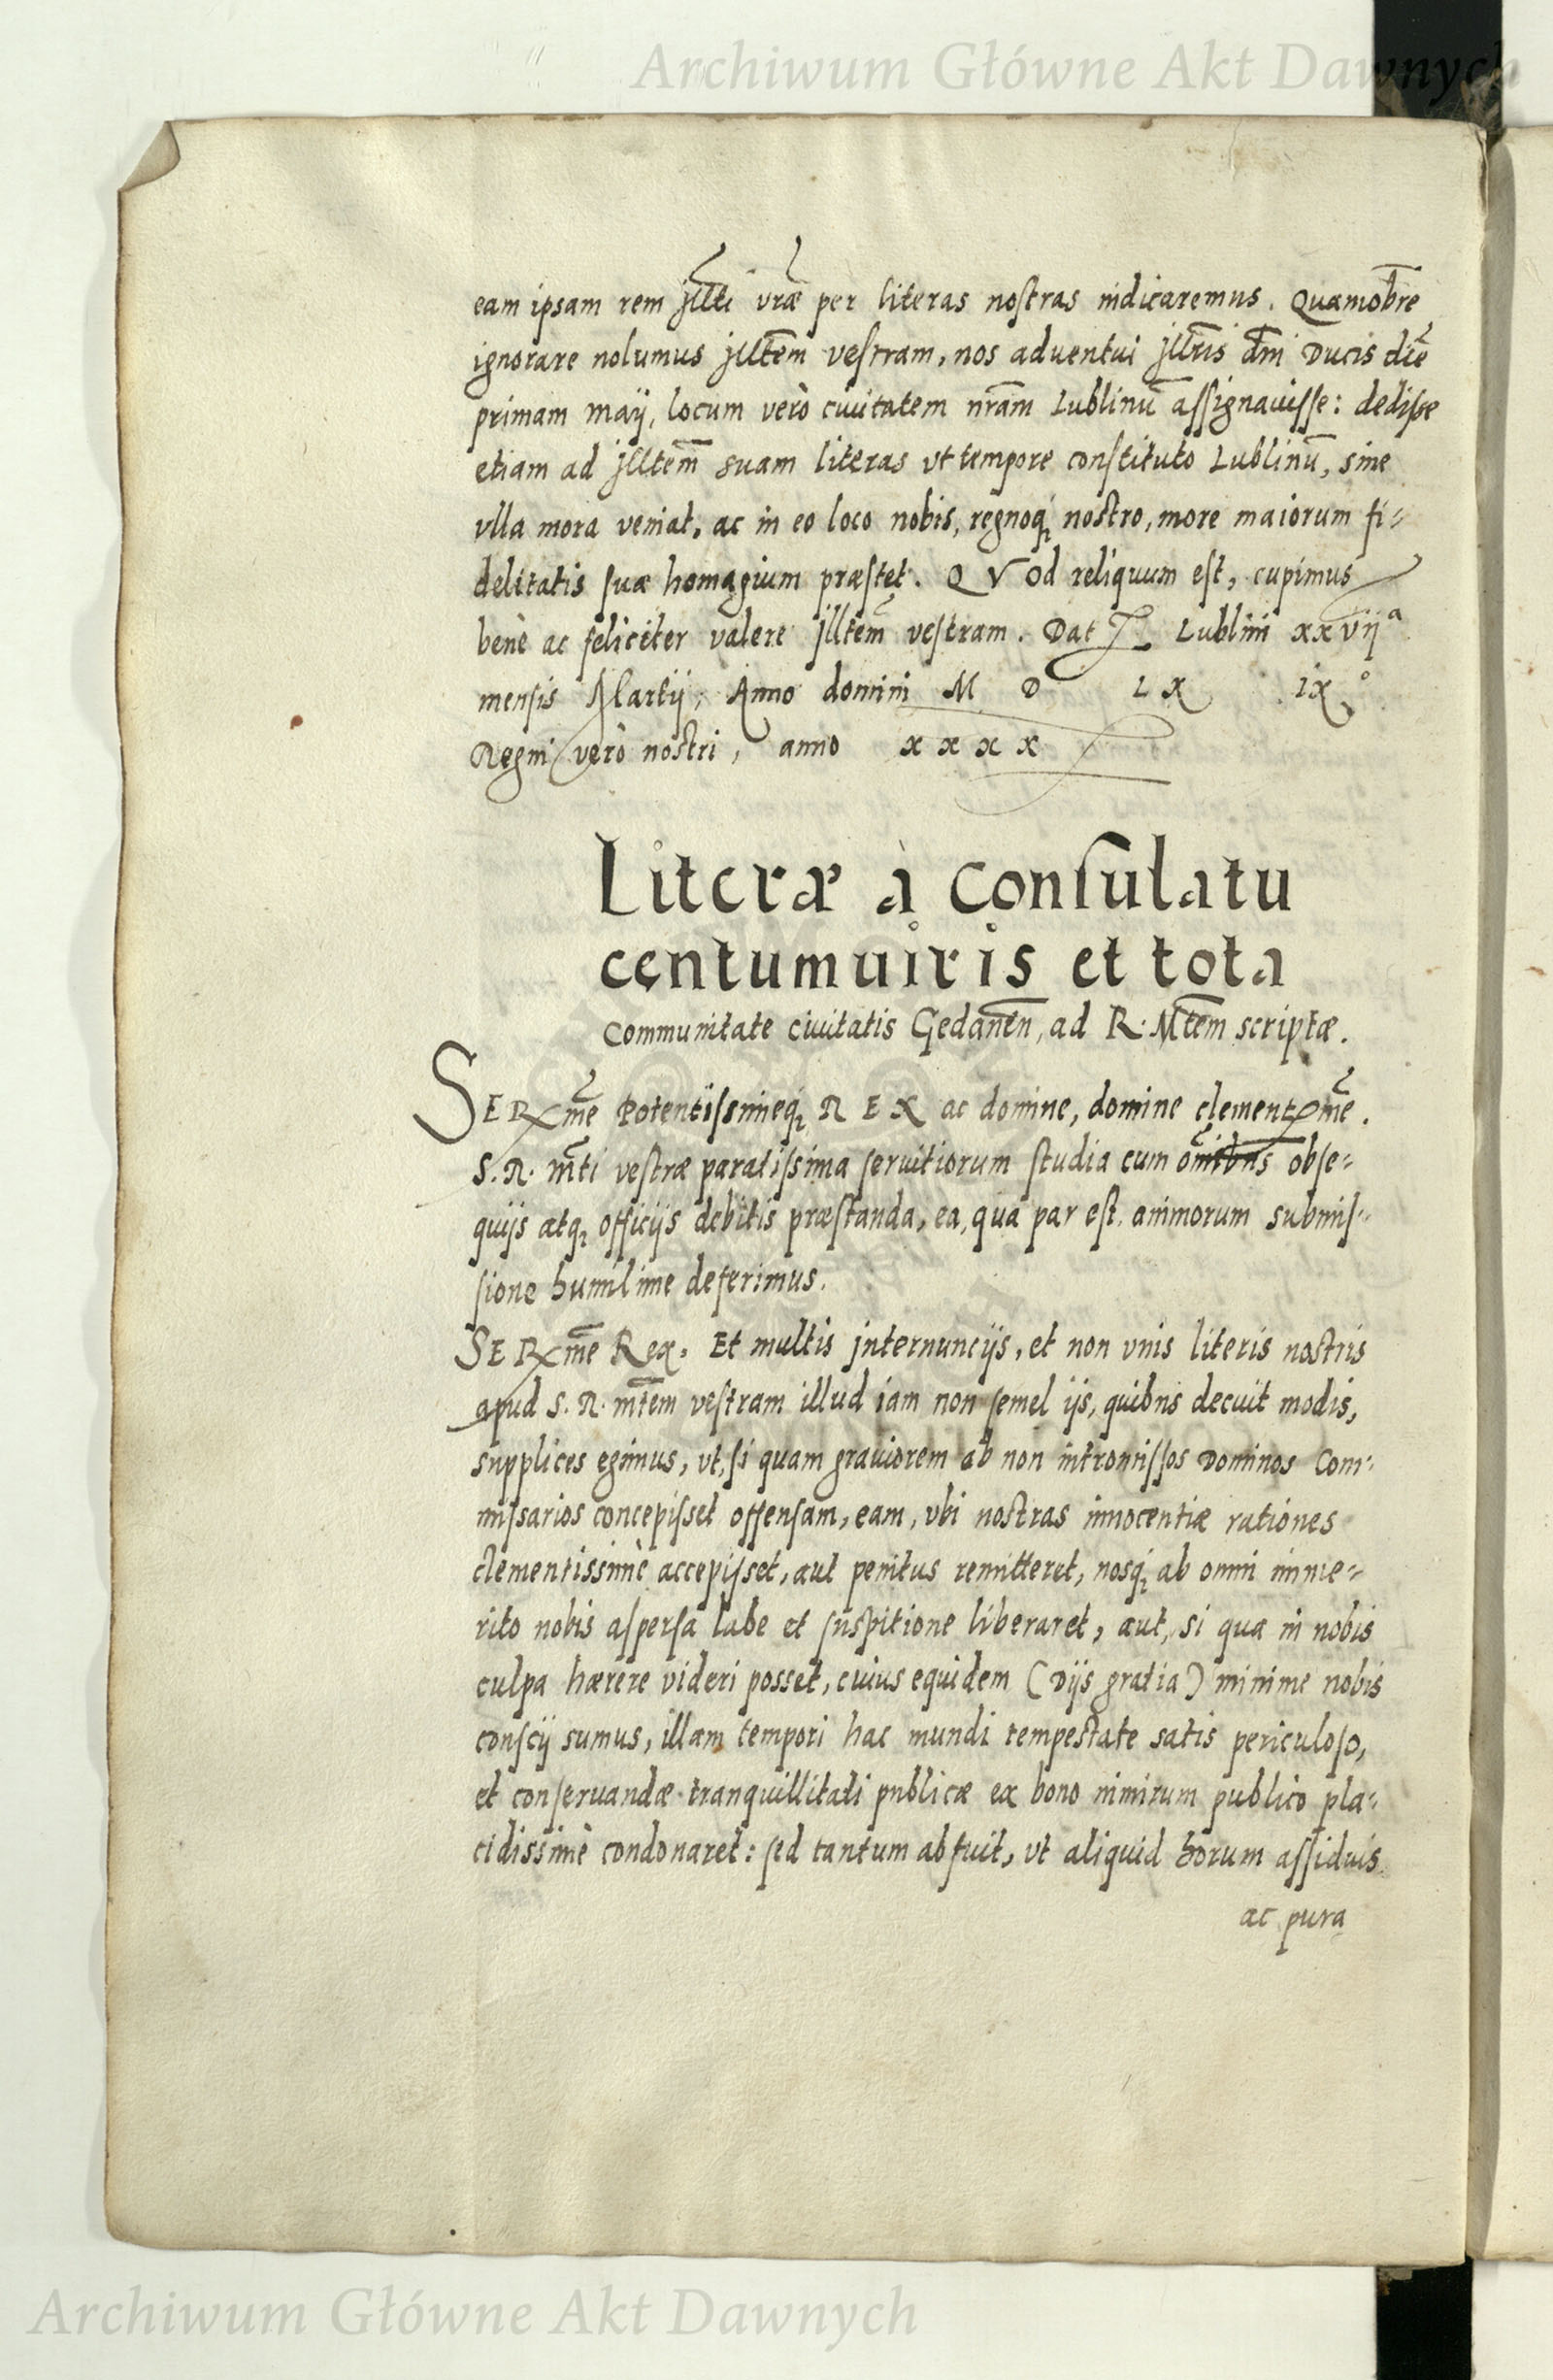 Archiwum Główne Akt Dawnych
eam ipsam rem jllti vrae per literas nostras indicaremus. Quamobre
ignorare nolumus jlltem vestram, nos aduentui jllris dni Ducis die
primam maij, locum verò ciuitatem nram Lublinu assignauisse: dedisse
etiam ad jlltem suam literas vt tempore constituto Lublinu, sine
vlla mora veniat, ac in eo loco nobis, regnoq nostro, more maiorum fi-
delitatis suæ homagium præstet. QVOd reliquum est, cupimus
benè ac feliciter valere jlltem vestram. Dat Lublini xxvijª
mensis Martij, Anno domini M D LX IX°
Regni verò nostri, anno xxxx
Literæ à Consulatu
centumuiris et tota
Communitate ciuitatis Gedanen, ad R. Mtem scriptæ.
SERme Potentissimeq REX ac domine, domine clementme.
S. R. mti vestræ paratissima seruitiorum studia cum omibus obse-
quijs atq officijs debitis præstanda, ea, qua par est animorum submis-
sione humilime deferimus.
SERme Rex. Et multis internuncijs, et non vnis literis nostris
apud S. R. mtem vestram illud iam non semel ijs, quibus decuit modis,
supplices egimus, vt, si quam grauiorem ab non intromissos Dominos Com-
missarios concepisset offensam, eam, vbi nostras innocentiæ rationes
clementissimè accepisset, aut penitus remitteret, nosq ab omni imme-
rito nobis aspersa labe et suspitione liberaret, aut, si qua in nobis
culpa hærere videri posset, cuius equidem (Dijs gratia) minime nobis
conscij sumus, illam tempori hac mundi tempestate satis periculoso,
et conseruandæ tranquillitati publicæ ex bono nimirum publico pla-
cidissimè condonaret: sed tantum abfuit, vt aliquid horum assiduis
ac pura
Archiwum Główne Akt Dawnych